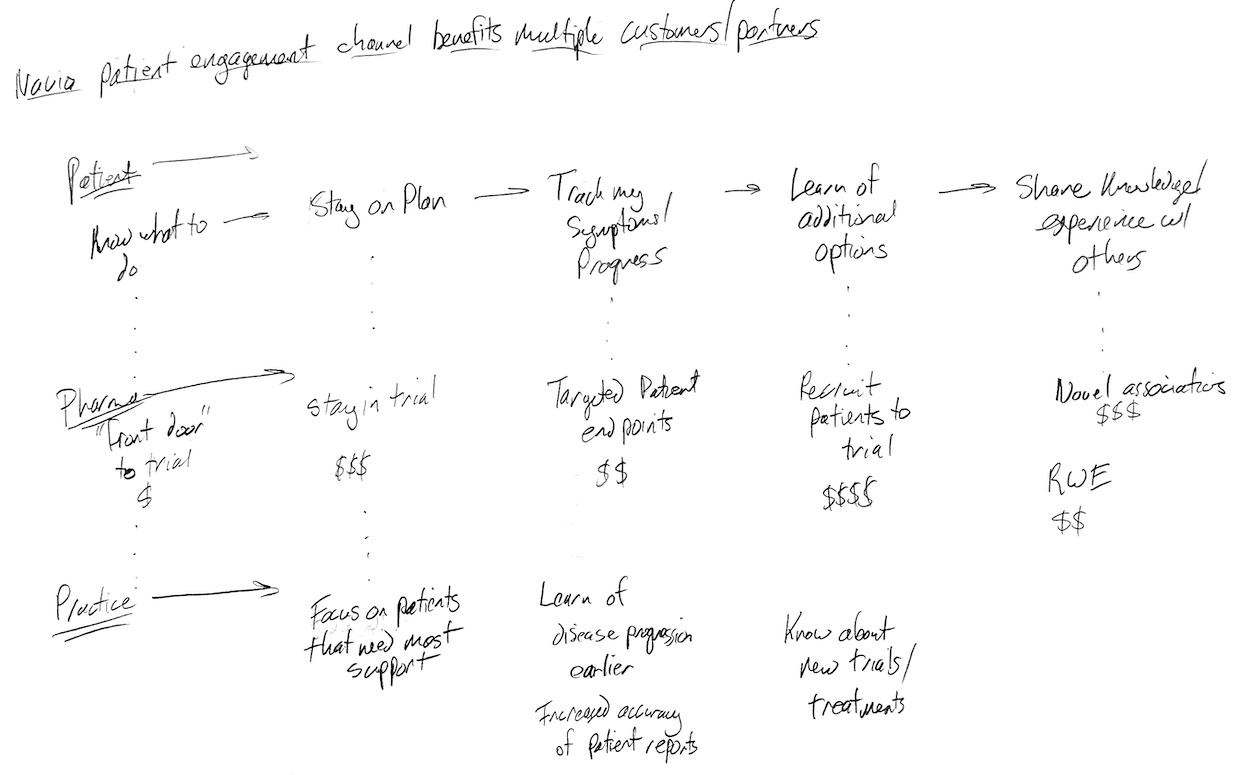 Navia patient engagement channel benefits multiple customers/partners
Patient
Know what to
do
Stay on Plan
Track my
Symptoms/
Progress
Learn of
additional
options
Share Knowledge/
experience w/
others
Pharma
"Front door"
to trial
$
stay in trial
$$$
Targeted Patient
endpoints
$$
Recruit
patients to
trial
$$$$
Novel associations
$$$
RWE
$$
Practice
Focus on patients
that need most
support
Learn of
disease progression
earlier
Increased accuracy
of patient reports
Know about
new trials/
treatments